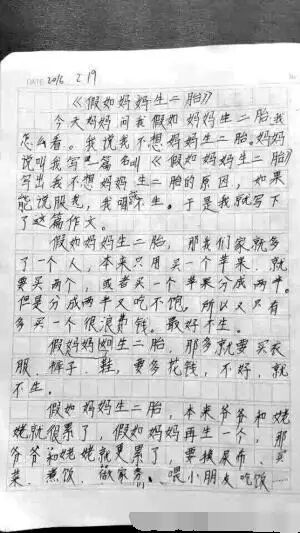 DATE 2016 2 19
《假如妈妈生二胎》
今天妈妈问我假如妈妈生二胎我
怎么看。我说我不想妈妈生二胎。妈妈
说叫我写一篇名叫《假如妈妈生二胎》
写出我不想妈妈生二胎的原因，如果
能说服我，我就不生。于是我就写下
了这篇作文。
假如妈妈生二胎，那我们家就多
了一个人，本来只用买一个苹果，就
要买两个，或者买一个苹果分成两半。
但是分成两半又吃不饱，所以又只有
多买一个很浪费钱。最好不生。
假妈妈如生二胎，那多就要买衣
服、裤子、鞋，要多花钱，不好，就
不生。
假如妈妈生二胎，本来爷爷和姥
姥就很累了，假如妈妈再生一个，那
爷爷和姥姥就更累了，要换尿布、买
菜、煮饭、做家务、喂小朋友吃饭……